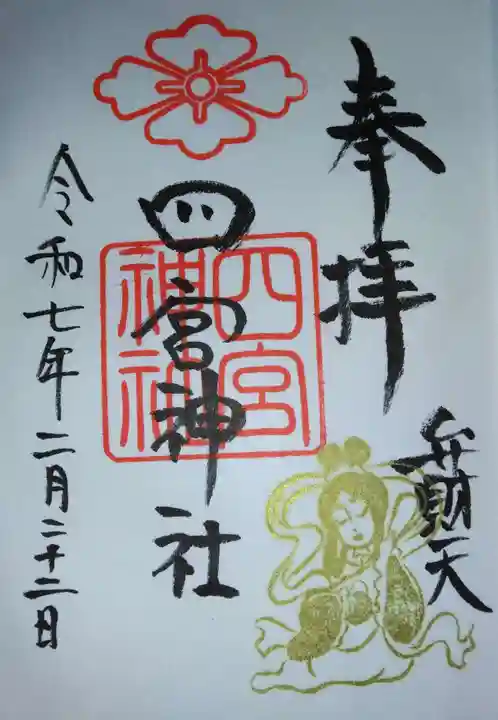 奉拝
弁財天
四宮神社
四宮
神社
令和七年二月二十二日